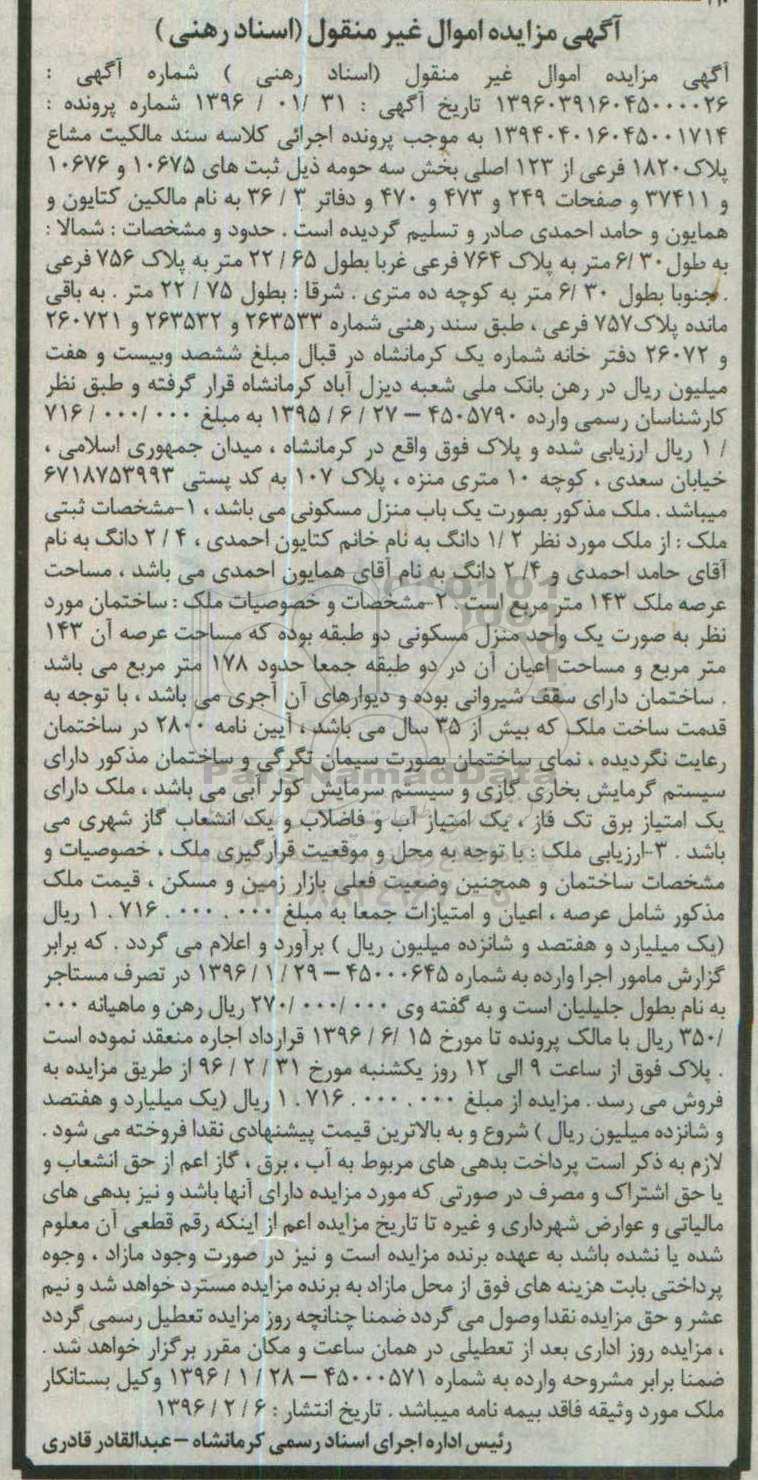 آگهی مزایده اموال غیر منقول (اسناد رهنی )
آگهی مزایده اموال غیر منقول (اسناد رهنی ) شماره آگهی :
۱۳۹۶۰۳۹۱۶۰۴۵۰۰۰۰۲۶ تاریخ آگهی : ۳۱ /۰۱ / ۱۳۹۶ شماره پرونده :
۱۳۹۴۰۴۰۱۶۰۴۵۰۰۱۷۱۴ به موجب پرونده اجرائی کلاسه سند مالکیت مشاع
پلاک۱۸۲۰ فرعی از ۱۲۳ اصلی بخش سه حومه ذیل ثبت های ۱۰۶۷۵ و ۱۰۶۷۶
و ۳۷۴۱۱ و صفحات ۲۴۹ و ۴۷۳ و ۴۷۰ و دفاتر ۳ / ۳۶ به نام مالکین کتایون و
همایون و حامد احمدی صادر و تسلیم گردیده است . حدود و مشخصات : شمالا :
به طول۳۰ /۶ متر به پلاک ۷۶۴ فرعی غربا بطول ۶۵ / ۲۲ متر به پلاک ۷۵۶ فرعی
. جنوبا بطول ۳۰ /۶ متر به کوچه ده متری . شرقا : بطول ۷۵ / ۲۲ متر . به باقی
مانده پلاک۷۵۷ فرعی ، طبق سند رهنی شماره ۲۶۳۵۳۳ و ۲۶۳۵۳۲ و ۲۶۰۷۲۱
و ۲۶۰۷۲ دفتر خانه شماره یک کرمانشاه در قبال مبلغ ششصد وبیست و هفت
میلیون ریال در رهن بانک ملی شعبه دیزل آباد کرمانشاه قرار گرفته و طبق نظر
کارشناسان رسمی وارده ۴۵۰۵۷۹۰ – ۲۷ / ۶ / ۱۳۹۵ به مبلغ ۰۰۰ /۰۰۰ / ۷۱۶
/ ۱ ریال ارزیابی شده و پلاک فوق واقع در کرمانشاه ، میدان جمهوری اسلامی ،
خیابان سعدی ، کوچه ۱۰ متری منزه ، پلاک ۱۰۷ به کد پستی ۶۷۱۸۷۵۳۹۹۳
میباشد . ملک مذکور بصورت یک باب منزل مسکونی می باشد ، ۱-مشخصات ثبتی
ملک : از ملک مورد نظر ۲ /۱ دانگ به نام خانم کتایون احمدی ، ۴ / ۲ دانگ به نام
آقای حامد احمدی و ۴/ ۲ دانگ به نام آقای همایون احمدی می باشد ، مساحت
عرصه ملک ۱۴۳ متر مربع است . ۲-مشخصات و خصوصیات ملک : ساختمان مورد
نظر به صورت یک واحد منزل مسکونی دو طبقه بوده که مساحت عرصه آن ۱۴۳
متر مربع و مساحت اعیان آن در دو طبقه جمعا حدود ۱۷۸ متر مربع می باشد
. ساختمان دارای سقف شیروانی بوده و دیوارهای آن آجری می باشد ، با توجه به
قدمت ساخت ملک که بیش از ۳۵ سال می باشد ، آیین نامه ۲۸۰۰ در ساختمان
رعایت نگردیده ، نمای ساختمان بصورت سیمان تگرگی و ساختمان مذکور دارای
سیستم گرمایش بخاری گازی و سیستم سرمایش کولر آبی می باشد ، ملک دارای
یک امتیاز برق تک فاز ، یک امتیاز آب و فاضلاب و یک انشعاب گاز شهری می
باشد . ۳-ارزیابی ملک : با توجه به محل و موقعیت قرارگیری ملک ، خصوصیات و
مشخصات ساختمان و همچنین وضعیت فعلی بازار زمین و مسکن ، قیمت ملک
مذکور شامل عرصه ، اعیان و امتیازات جمعا به مبلغ ۰۰۰ . ۰۰۰ . ۷۱۶ . ۱ ریال
(یک میلیارد و هفتصد و شانزده میلیون ریال ) برآورد و اعلام می گردد . که برابر
گزارش مامور اجرا وارده به شماره ۴۵۰۰۰۶۴۵ – ۲۹ / ۱ / ۱۳۹۶ در تصرف مستاجر
به نام بطول جلیلیان است و به گفته وی ۰۰۰ /۰۰۰ /۲۷۰ ریال رهن و ماهیانه ۰۰۰
/۳۵۰ ریال با مالک پرونده تا مورخ ۱۵ /۶ / ۱۳۹۶ قرارداد اجاره منعقد نموده است
. پلاک فوق از ساعت ۹ الی ۱۲ روز یکشنبه مورخ ۳۱ / ۲ / ۹۶ از طریق مزایده به
فروش می رسد . مزایده از مبلغ ۰۰۰ . ۰۰۰ . ۷۱۶ . ۱ ریال (یک میلیارد و هفتصد
و شانزده میلیون ریال ) شروع و به بالاترین قیمت پیشنهادی نقدا فروخته می شود .
لازم به ذکر است پرداخت بدهی های مربوط به آب ، برق ، گاز اعم از حق انشعاب و
یا حق اشتراک و مصرف در صورتی که مورد مزایده دارای آنها باشد و نیز بدهی های
مالیاتی و عوارض شهرداری و غیره تا تاریخ مزایده اعم از اینکه رقم قطعی آن معلوم
شده یا نشده باشد به عهده برنده مزایده است و نیز در صورت وجود مازاد ، وجوه
پرداختی بابت هزینه های فوق از محل مازاد به برنده مزایده مسترد خواهد شد و نیم
عشر و حق مزایده نقدا وصول می گردد ضمنا چنانچه روز مزایده تعطیل رسمی گردد
، مزایده روز اداری بعد از تعطیلی در همان ساعت و مکان مقرر برگزار خواهد شد .
ضمنا برابر مشروحه وارده به شماره ۴۵۰۰۰۵۷۱ – ۲۸ / ۱ / ۱۳۹۶ وکیل بستانکار
ملک مورد وثیقه فاقد بیمه نامه میباشد . تاریخ انتشار : ۶ / ۲ / ۱۳۹۶
رئیس اداره اجرای اسناد رسمی کرمانشاه – عبدالقادر قادری
ParsNamadData